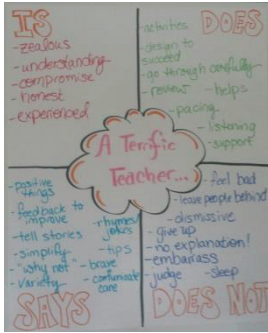 IS
- zealous
- understanding
- compromise
- honest
- experienced
DOES
- activities
- design to
succeed
- go through carefully
- review
- helps
- pacing
- listening
- support
A Terrific
Teacher...
- positive
things
- feedback to
improve
- rhymes/
jokes
- tell stories
- simplify
- tips
- "why not"
- brave
- variety
- communicate
care
SAYS
- feel bad
- leave people behind
- dismissive
- give up
- no explanation!
- embarrass
- judge
- sleep
DOES NOT